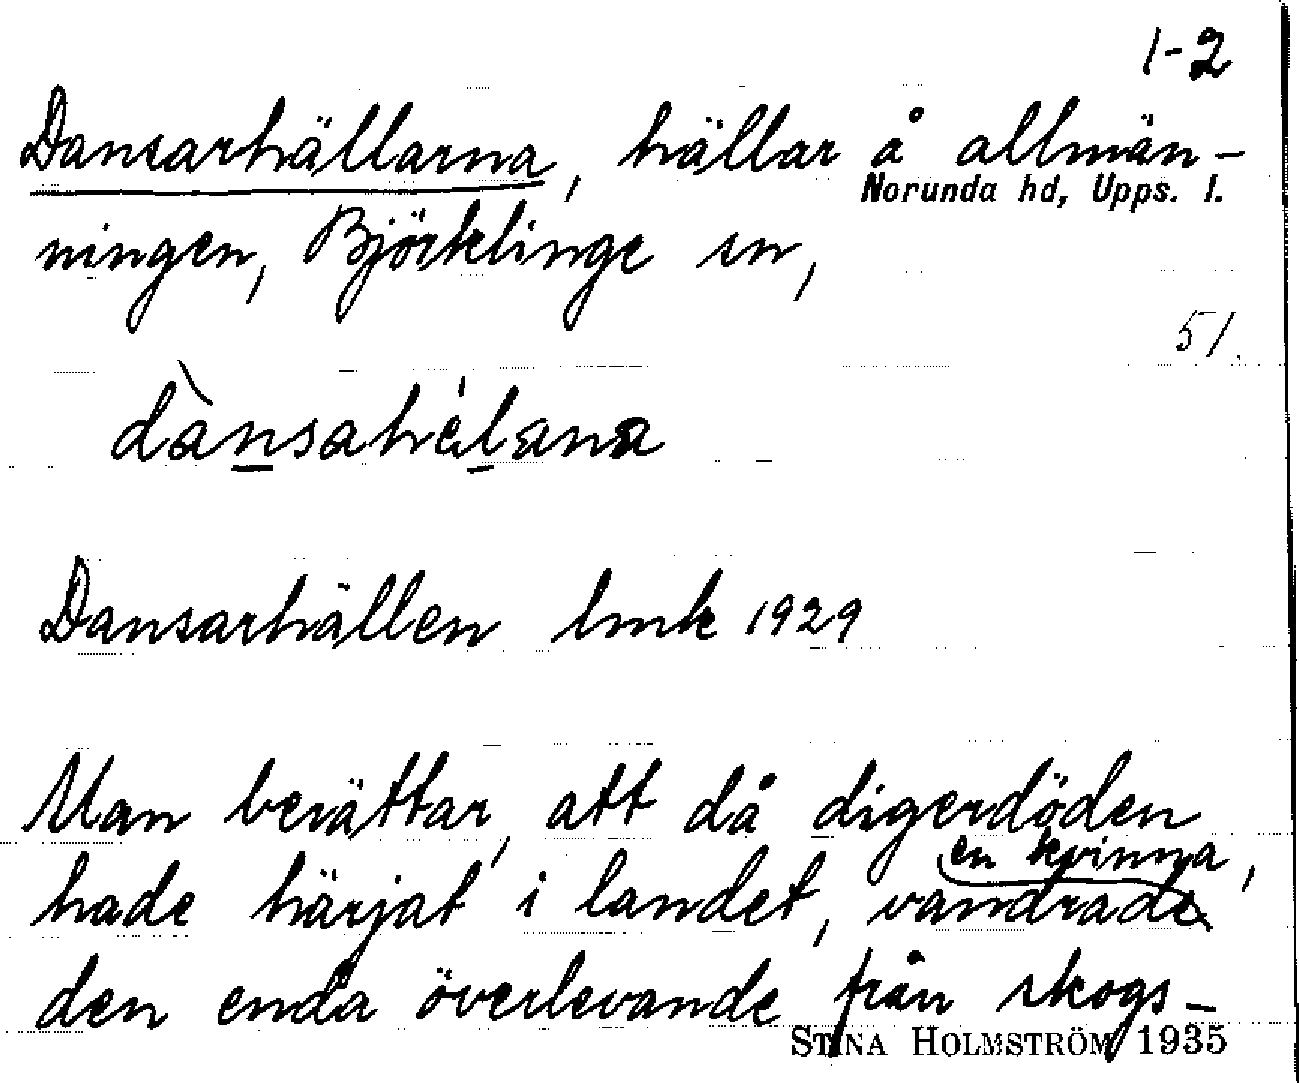 1-2
Dansarhällarna, hällar å allmän-
Norunda hd, Upps. l.
ningen, Björklinge sn,
51.
dànsahälana
Dansarhällen lmk 1929
Man berättar, att då digerdöden
en kvinna,
hade härjat i landet, vandrade
den enda överlevande från skogs-
STINA HOLMSTRÖM 1935